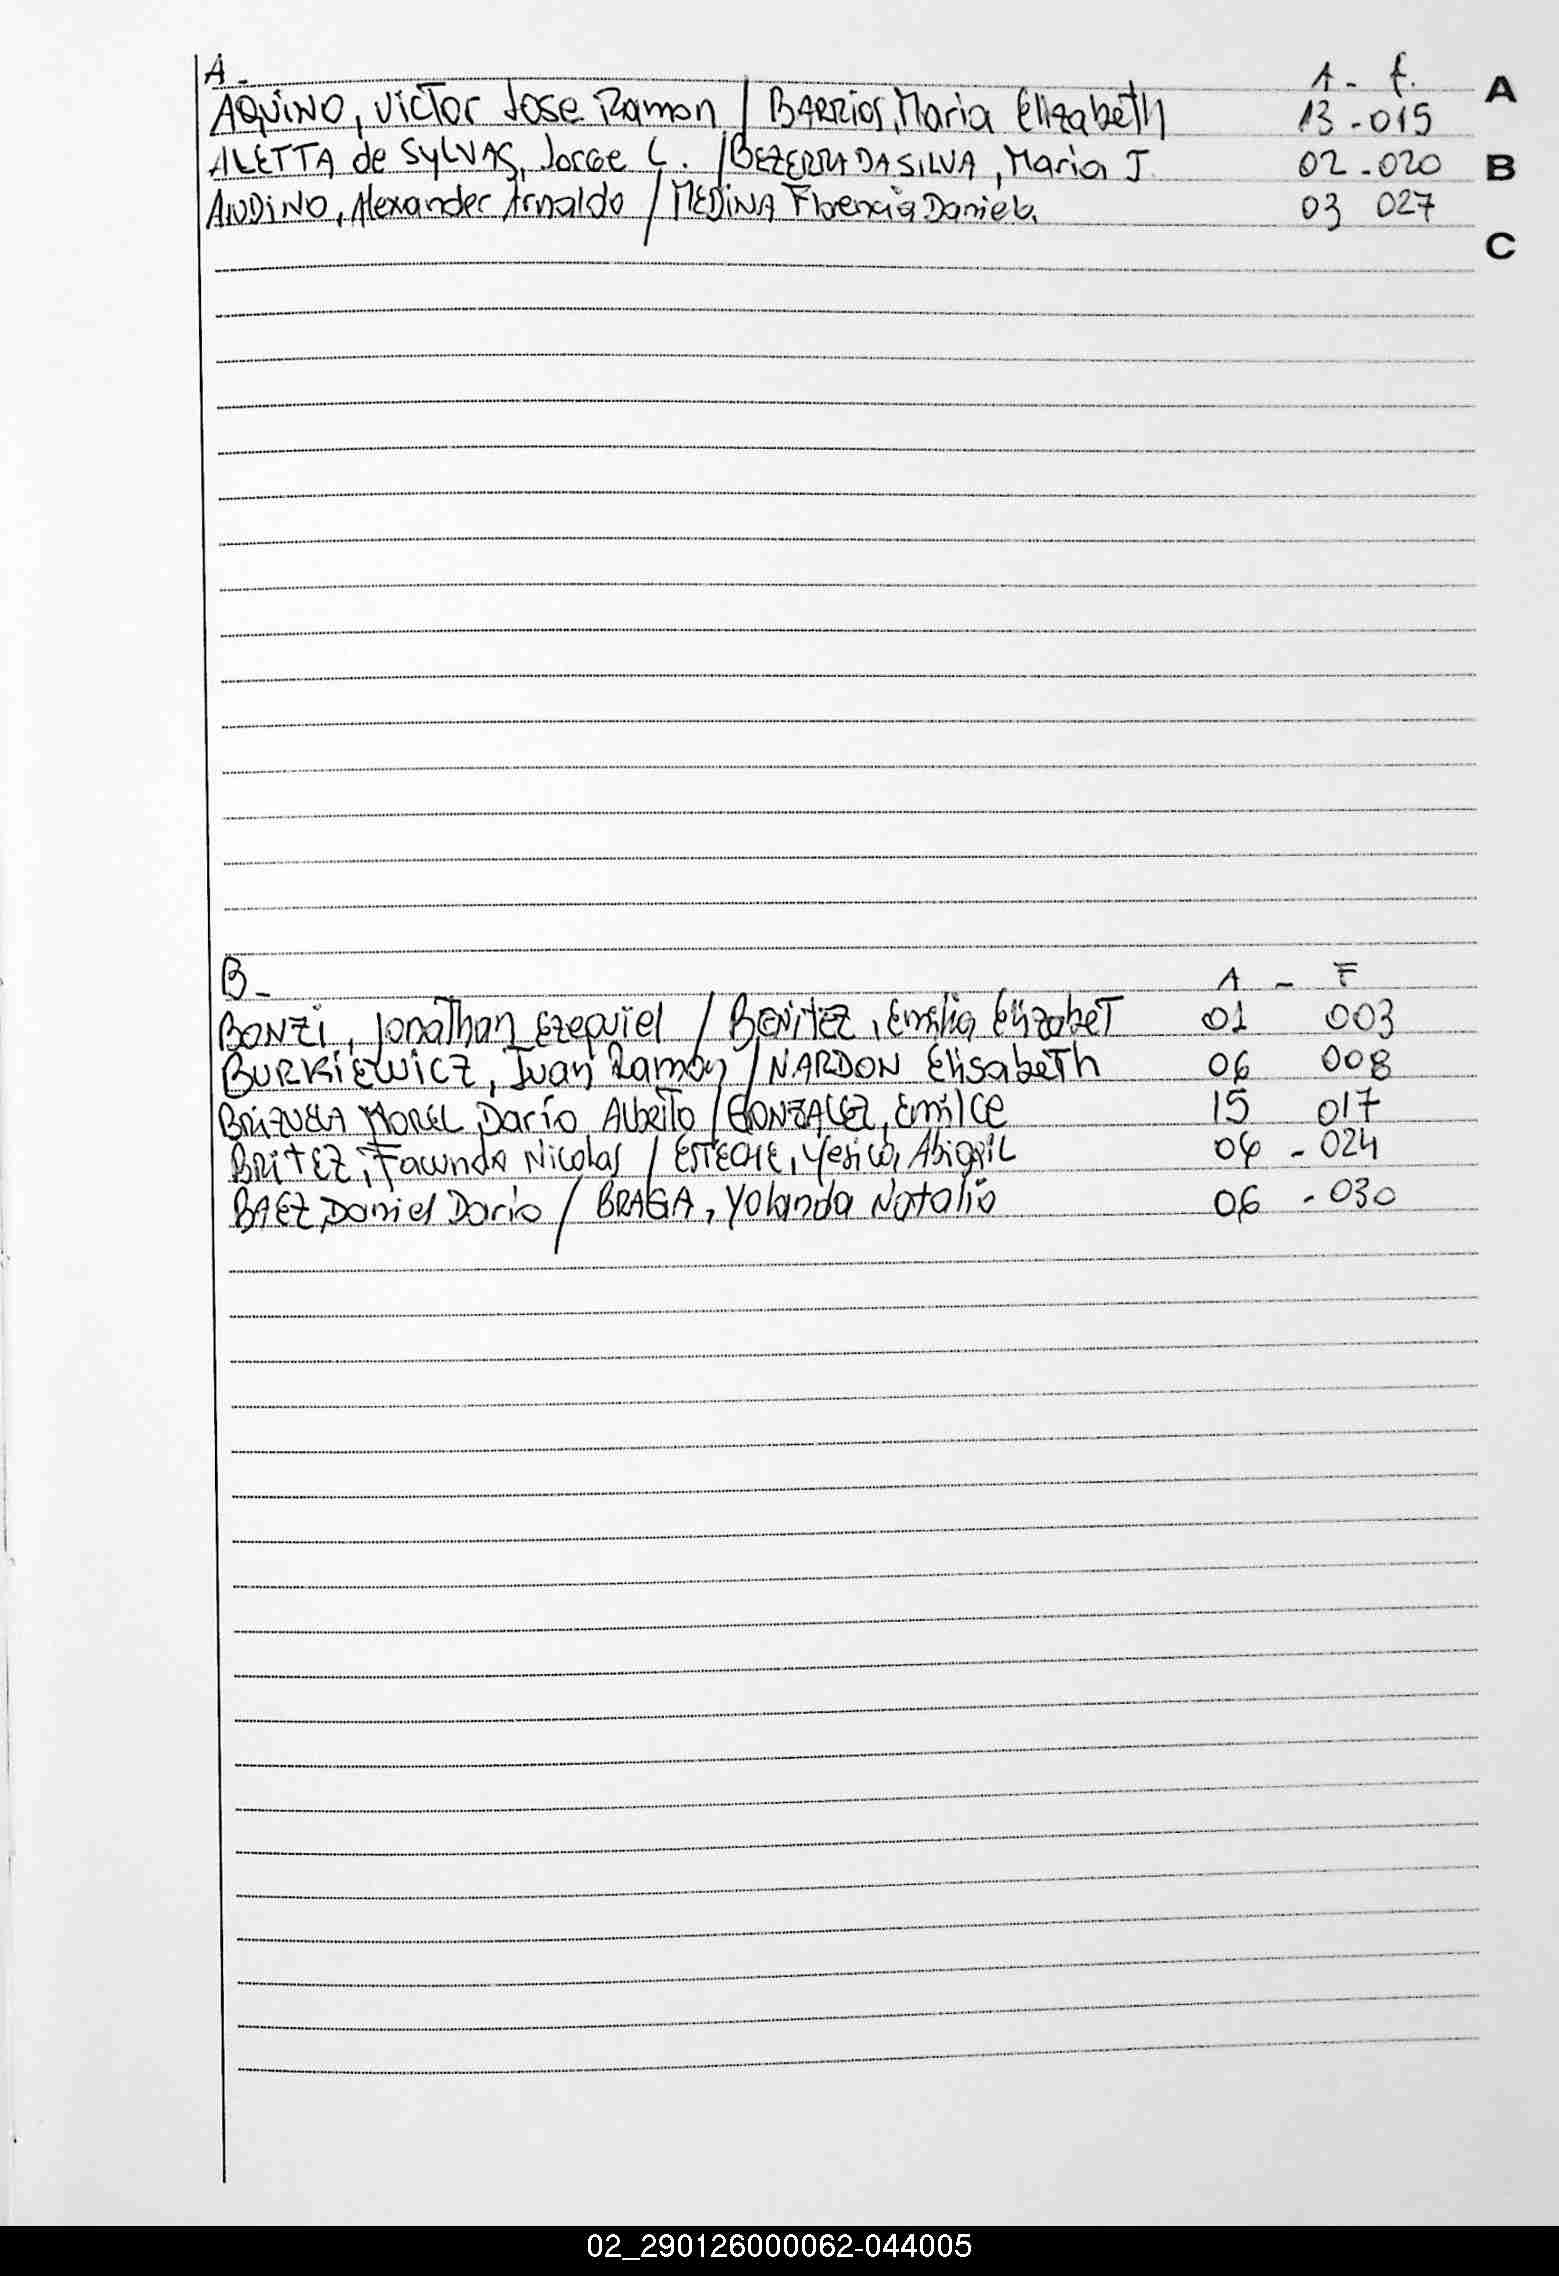 A - 1 - f. A
AQUINO, Victor Jose Ramon / BARRIOS, Maria Elizabeth 13 - 015
ALETTA de SYLVAS, Jorge L. / BEZERRA DA SILVA, Maria J. 02 - 020 B
ANDINO, Alexander Arnaldo / MEDINA Florencia Daniela 03 027
C
B - A - F
BONZI, Jonathan Ezequiel / BENITEZ, Emilia Elizabet 01 003
BURKIEWICZ, Juan Ramon / NARDON Elisabeth 06 008
BRIZUELA MOREL, Darío Alberto / GONZALEZ, Emilce 15 017
BRITEZ, Facundo Nicolas / ESTECHE, Yesica, Abigail 04 - 024
BAEZ, Daniel Dario / BRAGA, Yolanda Natalia 06 - 030
02_290126000062-044005